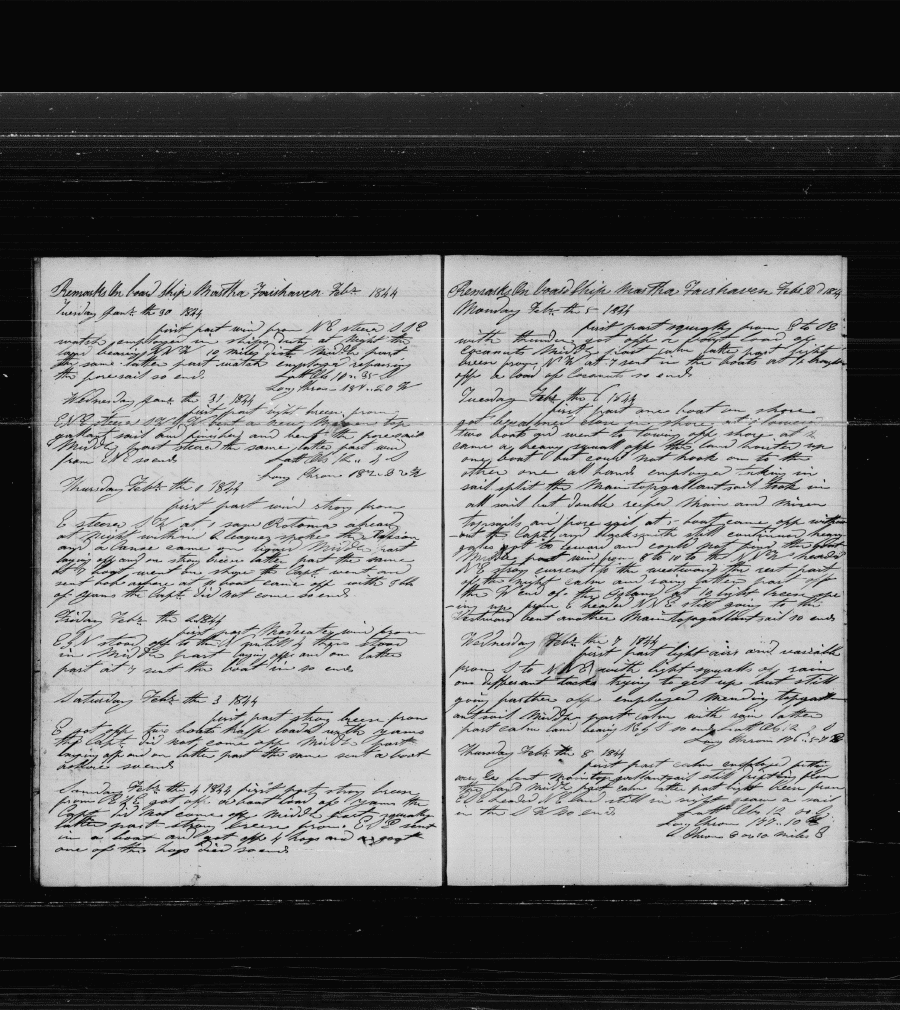 Remarks On board Ship Martha Fairhaven Feb 1844
Tuesday Jan the 30 1844
first part wind from NE steern SSE
watch employed in ships duty at Night the
land bearing NNW 10 miles dist Middle part
the same latter part watch employed repairing
the foresail so end
Long Chron 187 .. 20 W
Wednesday Jan the 31 1844
first part light breeze from
ENE steern bent a new Mizzen top
gallant sail and finished and bent the foresail
Middle part steern the same latter part wind
from ENE so end
Long Chron 182 W
Thursday Feb the 1 1844
first part wind strong from
E steern at 1 saw Rotoma ahead
at Night within 2 leagues spoke the
and a Canoe came on board Middle part
laying off and on strong breeze latter part the same
a boat went on shore the Capt went and
sent boat ashore at 10 Again came off with 3 bbls
of yams the Capt did not come so end
Friday Feb the 2 1844
first part Moderate wind from
E N stood off to the N until 4 then stood
in Middle part laying off and on latter
part at 7 sent the boat in so end
Saturday Feb the 3 1844
first part strong breeze from
E got off two boats half loaded with yams
the Capt did not come off Middle part
laying off and on latter part the same sent a boat
ashore so end
Sunday Feb the 4 1844 first part strong breeze
from got off a boat load of yams the
Capt did not come off Middle part squally
latter part strong breeze from sent
in a boat and got off 4 hogs and
one of the hogs died so end
Remarks On board Ship Martha Fairhaven Feb 1844
Monday Feb the 5 1844
first part squally from E to
with thunder got off a boat load of
Cocoanuts Middle part calm latter part light
breeze from NW at 7 sent in the boats at brought
off a load of Cocoanuts so end
Tuesday Feb the 6 1844
first part one boat on shore
got becalmed close in shore at 1 lowered
two boats and went to towing off shore at 2
came a heavy squall off the land hoisted up
one boat but could not hook on to the
other one all hands employed taking in
sail split the Maintopgallantsail took in
all sail but double reefed Main and Mizen
topsails and fore sail at 5 boat came off without
the Capt and blacksmith still continued heavy
gales got to leward and could not find the
Middle part wind from E to to the headed
NE strong current to the westward the rest part
of the night calm and rainy latter part off
the W end of the Island at 10 light breeze spr
-ing up from E headed NNE still going to the
Westward bent another Maintopgallant sail so end
Wednesday Feb the 7 1844
first part light airs and variable
from S to NNE with light squalls of rain
on different tacks trying to get up but still
going farther off employed mending topgall
antsail Middle part calm with rain latter
part calm land bearing so end Latt Obs 12
Long Chron 176
Thursday Feb the 8 1844
first part calm employed fitting
over bent maintopgallantsail
this land Middle part calm latter part light breeze from
headed land still in sight saw a sail
in the so end
Latt Obs 12
Long Chron 177 .. 10
Chron 8 or 10 miles E